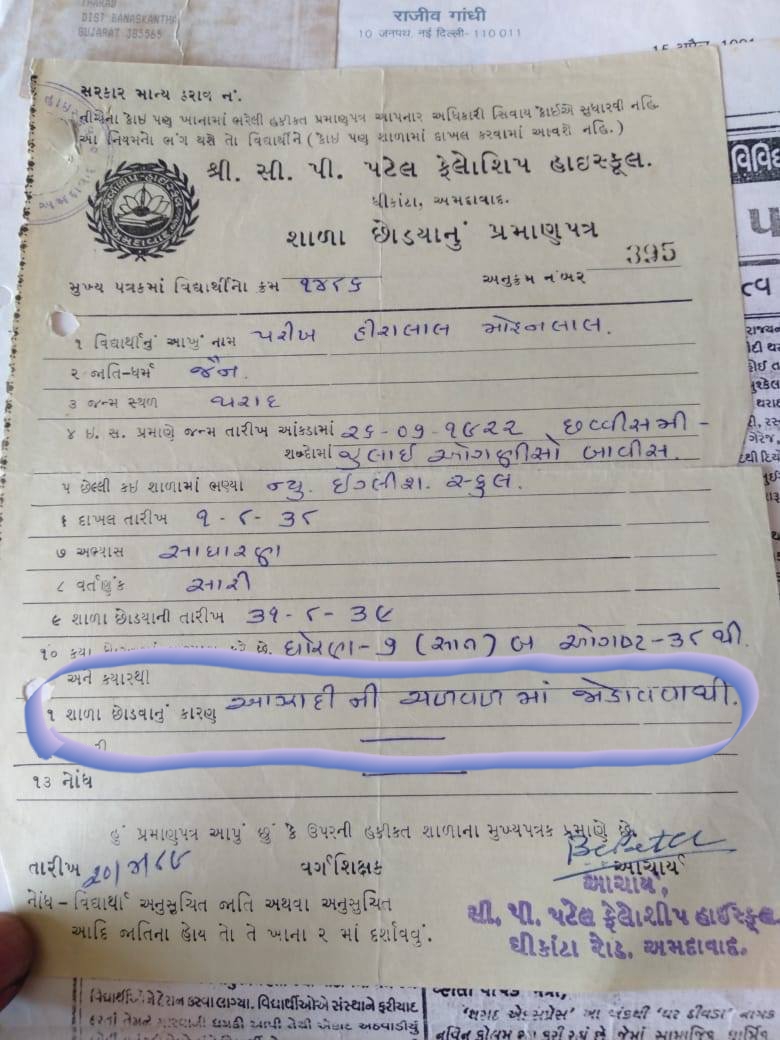 THARAD
DIST BANASKANTHA
GUJARAT 385565
राजीव गांधी
10 जनपथ, नई दिल्ली-110011
સરકાર માન્ય ઠરાવ નં.
નીચેના કોઇ પણ ખાનામાં ભરેલી હકીકત પ્રમાણપત્ર આપનાર અધિકારી સિવાય કોઈએ સુધારવી નહિ.
આ નિયમનો ભંગ થશે તો વિદ્યાર્થીને (કોઇ પણ શાળામાં દાખલ કરવામાં આવશે નહિ.)
શ્રી. સી. પી. પટેલ ફેલોશિપ હાઇસ્કૂલ.
ઘીકાંટા, અમદાવાદ.
શાળા છોડયાનું પ્રમાણપત્ર
395
મુખ્ય પત્રકમાં વિદ્યાર્થીનો ક્રમ ૧૪૮૬ અનુક્રમ નંબર
૧ વિદ્યાર્થીનું આખું નામ પરીખ હીરાલાલ મોહનલાલ.
૨ જાતિ-ધર્મ જૈન.
૩ જન્મ સ્થળ થરાદ
૪ ઇ. સ. પ્રમાણે જન્મ તારીખ આંકડામાં ૨૬-૦૭-૧૯૨૨ છવ્વીસમી -
શબ્દોમાં જુલાઈ ઓગણીસો બાવીસ.
૫ છેલ્લી કઇ શાળામાં ભણ્યા ન્યુ. ઈંગ્લીશ. સ્કુલ.
૬ દાખલ તારીખ ૧-૮-૩૮
૭ અભ્યાસ સાધારણ
૮ વર્તણુંક સારી
૯ શાળા છોડયાની તારીખ ૩૧-૮-૩૯
૧૦ કયા છે. ધોરણ-૭ (સાત) બ ઓગષ્ટ-૩૮ થી.
અને કયારથી
૧ શાળા છોડવાનું કારણ આઝાદી ની ચળવળ માં જોડાવવાથી.
૧૩ નોંધ
હું પ્રમાણપત્ર આપું છું કે ઉપરની હકીકત શાળાના મુખ્યપત્રક પ્રમાણે છે.
તારીખ વર્ગશિક્ષક આચાર્ય
આચાર્ય,
સી. પી. પટેલ ફેલોશીપ હાઈસ્કૂલ.
ઘીકાંટા રોડ, અમદાવાદ.
નોંધ - વિદ્યાર્થી અનુસૂચિત જાતિ અથવા અનુસુચિત
આદિ જાતિના હોય તો તે ખાના ૨ માં દર્શાવવું.
વિદ્યાર્થીઓ મેદાન કરવા લાગ્યા. વિદ્યાર્થીઓએ સંસ્થાને ફરીયાદ